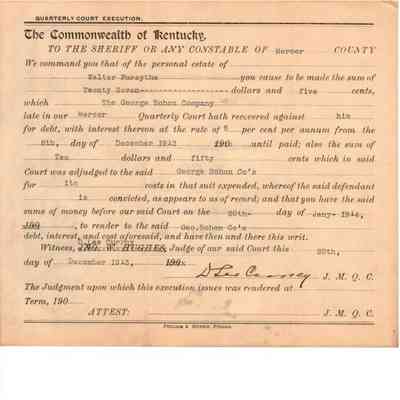 QUARTERLY COURT EXECUTION.
The Commonwealth of Kentucky,
TO THE SHERIFF OR ANY CONSTABLE OF Mercer COUNTY
We command you that of the personal estate of
Walter Forsythe you cause to be made the sum of
Twenty Seven dollars and five cents,
which The George Bohon Company
late in our Mercer Quarterly Court hath recovered against him
for debt, with interest thereon at the rate of 6 per cent per annum from the
8th, day of December 1943 190 until paid; also the sum of
Ten dollars and fifty cents which in said
Court was adjudged to the said George Bohon Co's
for its costs in that suit expended, whereof the said defendant
is convicted, as appears to us of record; and that you have the said
sums of money before our said Court on the 20th- day of Jany- 1944,
190 , to render to the said Geo.Bohon Co's
debt, interest, and cost aforesaid, and have then and there this writ.
Witness, JNO. W. HUGHES, Judge of our said Court this 20th,
day of December 1943, 190
J. M. Q. C.
The Judgment upon which this execution issues was rendered at
Term, 190
ATTEST: J. M. Q. C.